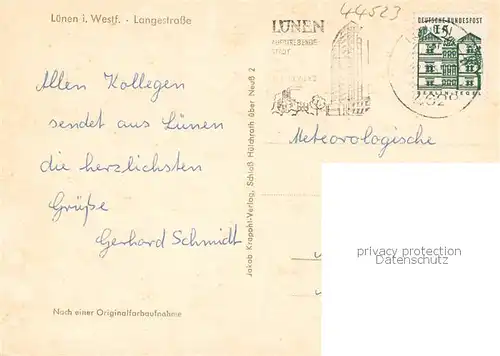 Lünen i. Westf. - Langestraße
44523
LÜNEN
STADT
DEUTSCHE BUNDESPOST
15
BERLIN-TEGEL
Allen Kollegen
sendet aus Lünen
die herzlichsten
Grüße
Gerhard Schmidt
Meteorologische
Jakob Krapohl-Verlag, Schloß Hülchrath über Neuß 2
privacy protection
Datenschutz
Nach einer Originalfarbaufnahme